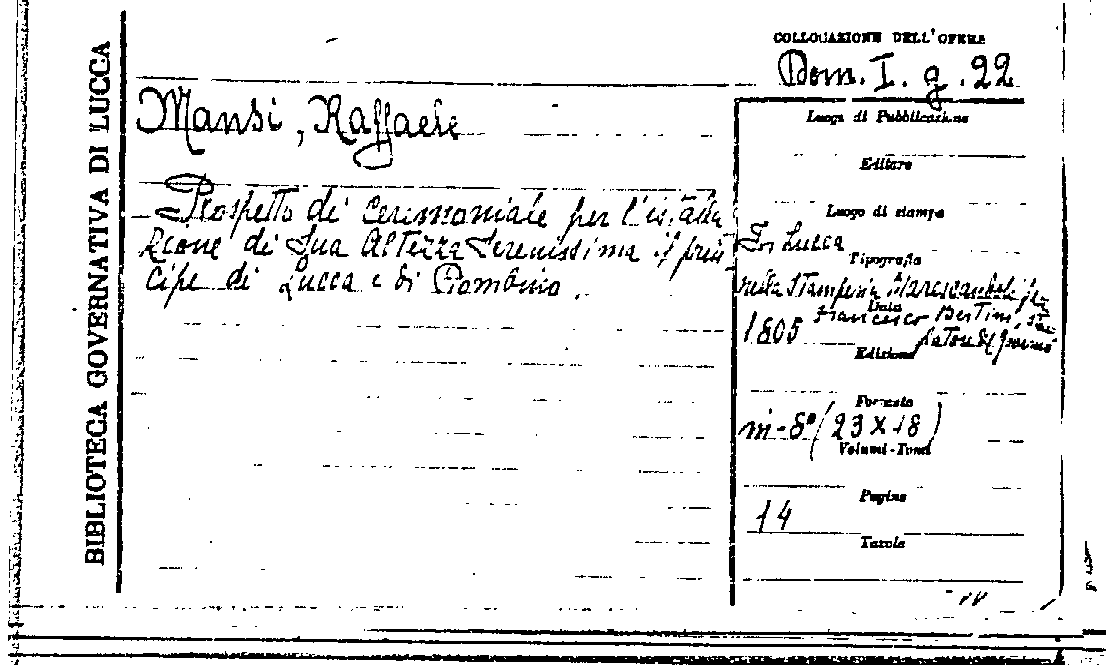 BIBLIOTECA GOVERNATIVA DI LUCCA
COLLOCAZIONE DELL'OPERA
Dom. I. g. 22
Mansi, Raffaele
Prospetto di Ceremoniale per l'istalla
zione di Sua Altezza Serenissima il prin-
cipe di Lucca e di Piombino.
Luogo di Pubblicazione
Editore
Luogo di stampa
In Lucca
Tipografia
nella Stamperia Marescandoli
Data
1805 Francesco Bertini,
Edizione
Formato
in-8° (23 X 18)
Volumi-Tomi
Pagine
14
Tavole